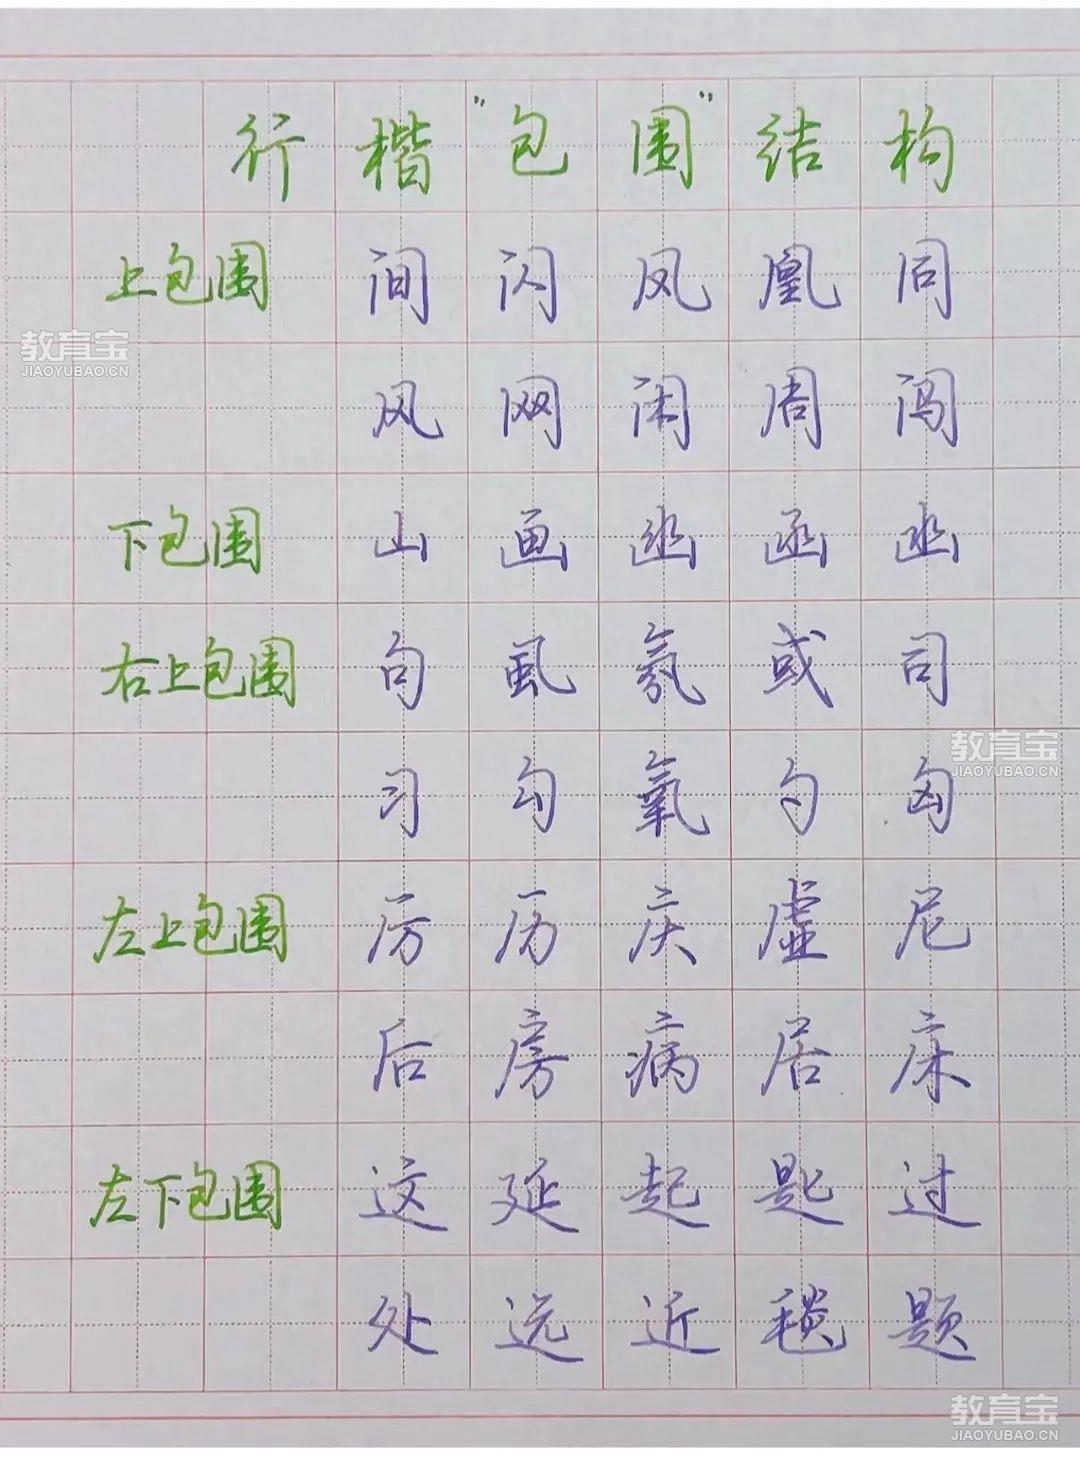 行楷"包围"结构
上包围 间 闪 凤 凰 同
风 网 闲 周 闯
教育宝
JIAOYUBAO.CN
下包围 山 画 幽 函 凼
右上包围 句 虱 氛 或 司
习 勾 氧 勺 匈
教育宝
JIAOYUBAO.CN
左上包围 厉 历 庆 虚 尼
后 房 病 居 床
左下包围 这 延 起 匙 过
处 远 近 毯 题
教育宝
JIAOYUBAO.CN